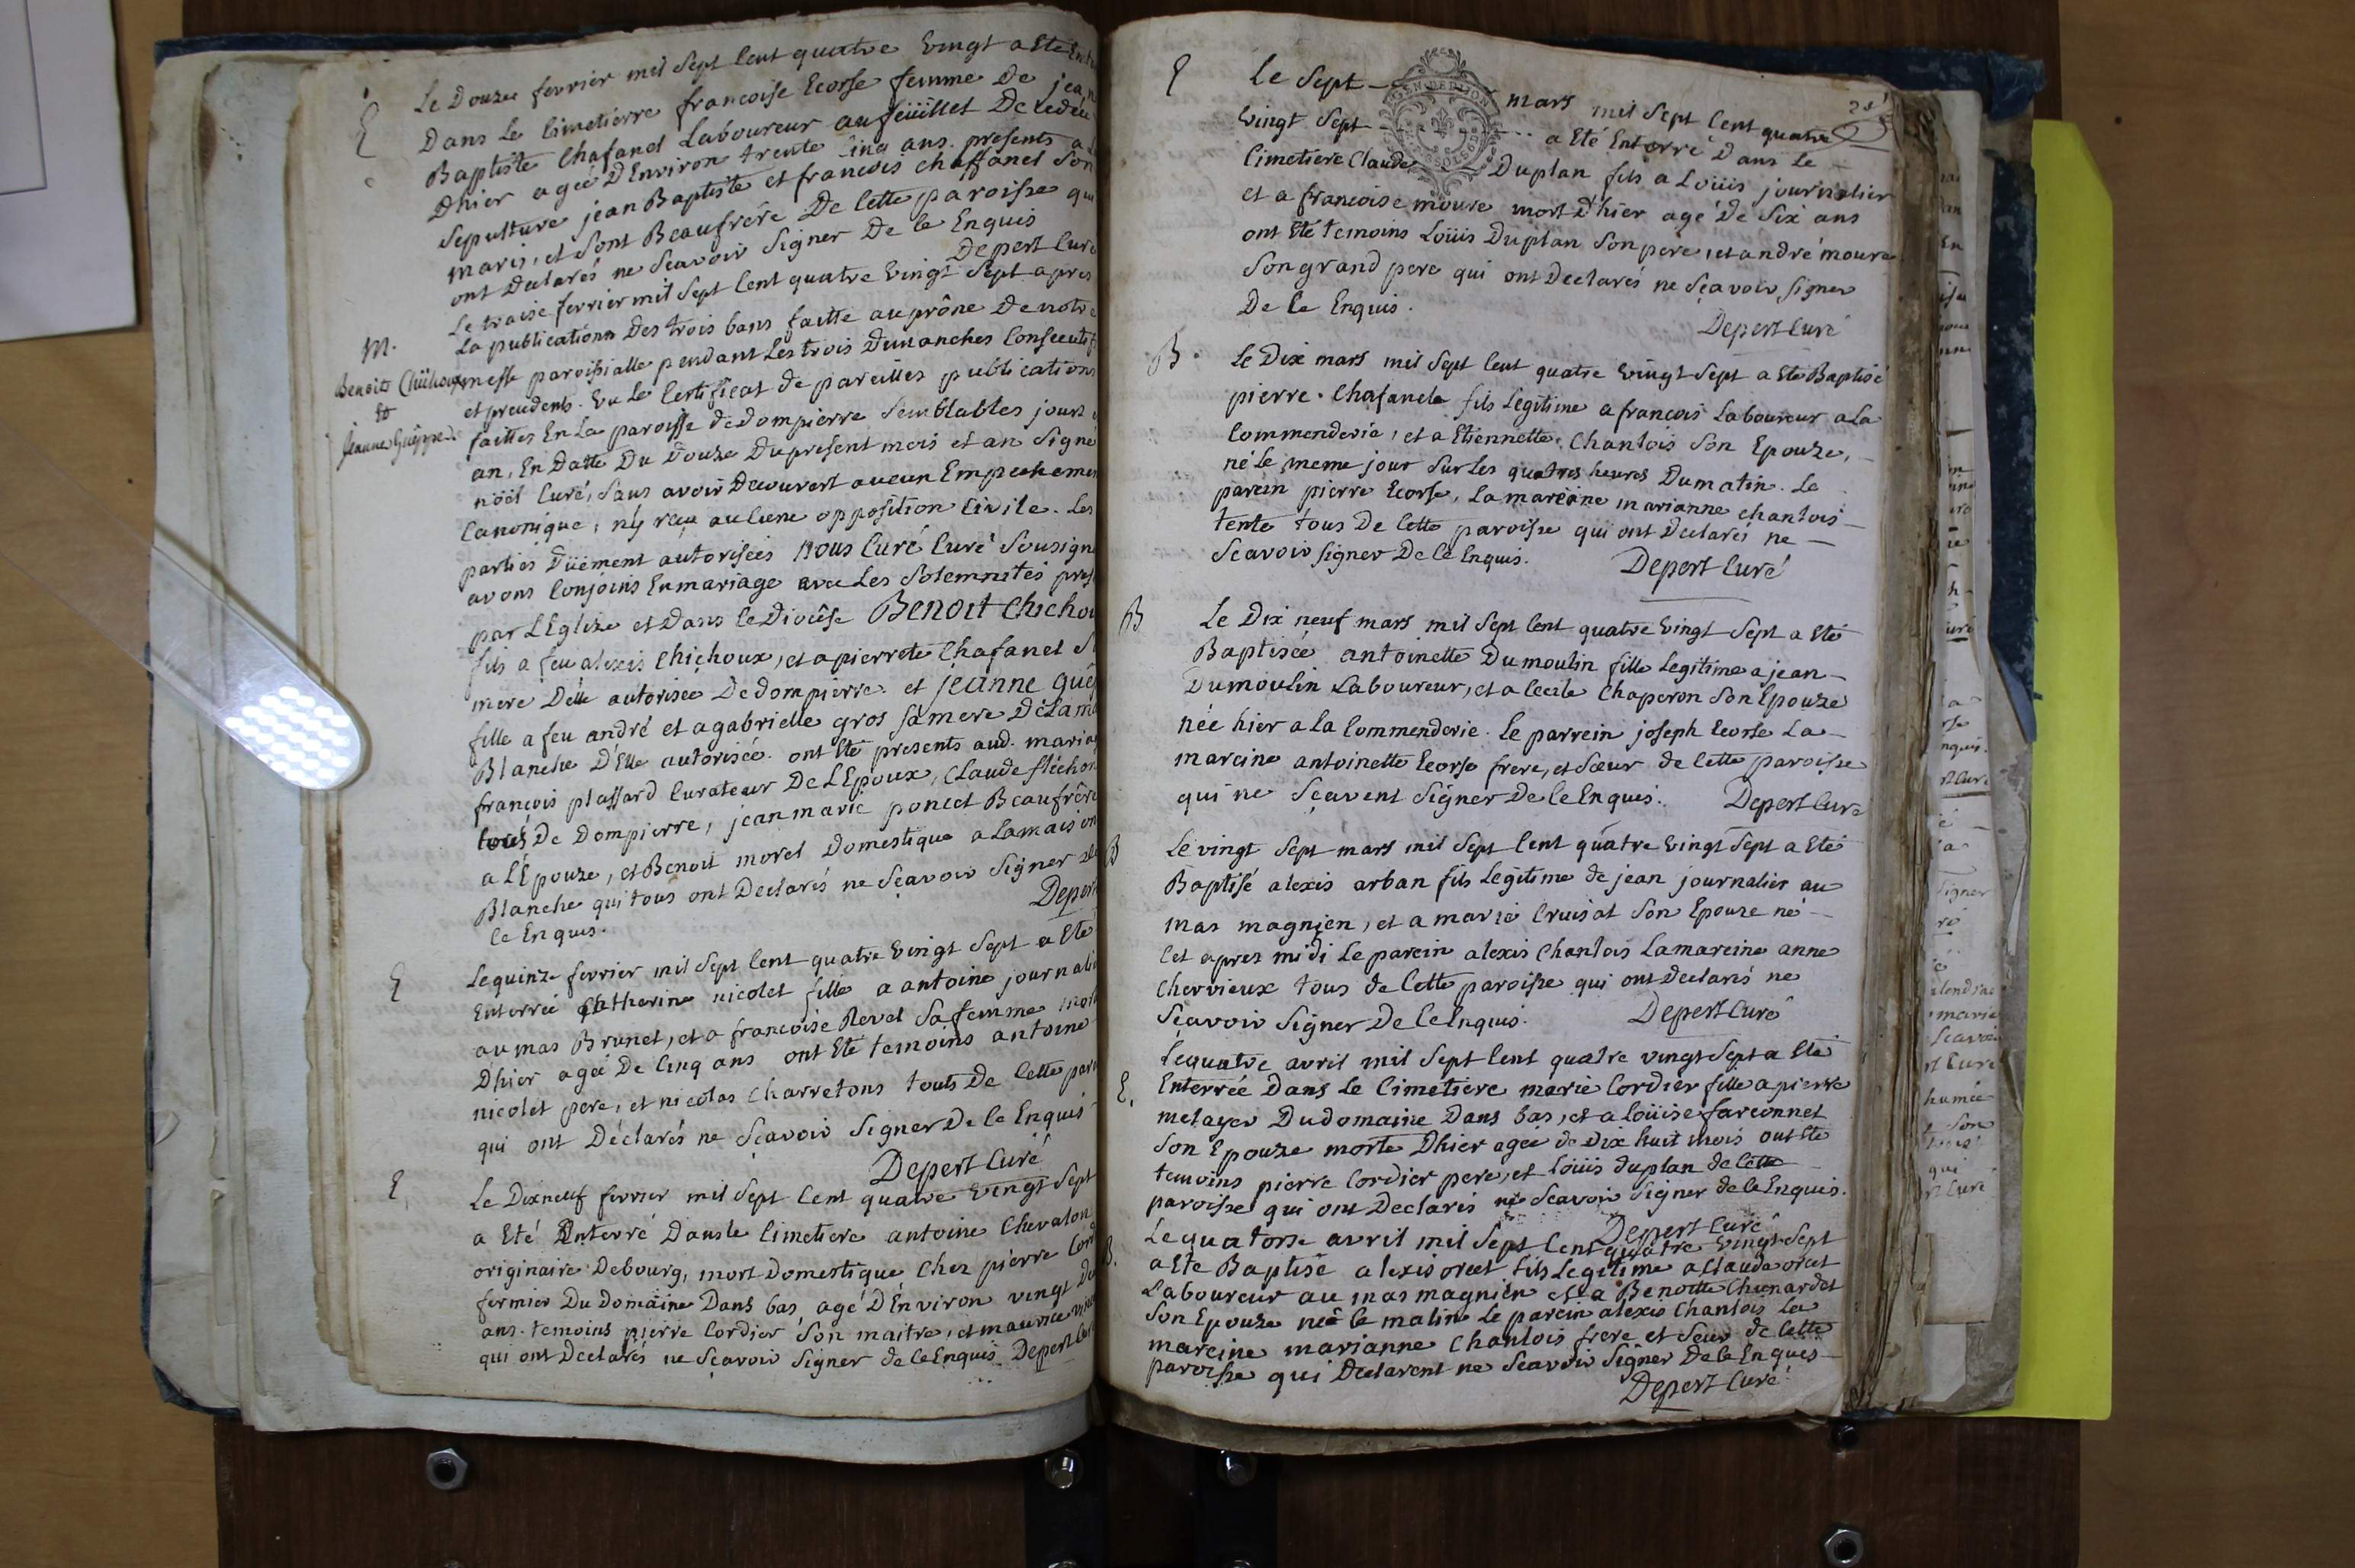 E
Le Douze fevrier mil Sept Cent quatre vingt a Eté
Dans Le Cimetierre francoise Ecorse femme De jean
Baptiste Chafanel Laboureur au feüillet De
Dhier agée D'Environ trente cinq ans. presents a
Sepulture jean Baptiste et francois chaffanel Son
mari, et Sont Beaufrére De Cette paroisse qui
ont Declarés ne Sçavoir Signer De Ce Enquis
Depert Curé
M.
Benoits Chichoux
Et
Jeanne
Le traise fevrier mil Sept Cent quatre vingt Sept apres
La publicationn Des trois bans faitte au prône De notre
messe paroissialle pendant Les trois Dimanches Consecutifs
et precedents. Vu Le Certificat de pareilles publications
faittes En La paroisse de dompierre Semblables jours
an, En Datte Du Douze Du present mois et an Signé
nöël Curé, Sans avoir Decouvert aucun Empechement
Canonique, ny reçu aucune opposition Civile. Les
parties Düement autorisées Nous Curé Curé Sousigné
avons Conjoins En mariage avec Les Solemnités
par L'Eglize et Dans le Diocêse Benoit Chichoux
fils a feu alexis Chichoux, et a pierrete Chafanel
mere D'elle autorisée De dompierre. et jeanne
fille a feu andré et a gabrielle gros Sa mere De La
Blanche D'Elle autorisée. ont Eté presents aud. mariage
françois plassard Curateur De L'Epoux, Claude
tous De Dompierre, jean marie poncet Beaufrére
a L'Epouze, et Benoit morel Domestique a La maison
Blanche qui tous ont Declarés ne Sçavoir Signer de
Ce Enquis.
Depert
E
Le quinze fevrier mil Sept Cent quatre vingt Sept a Eté
Enterrée Catherine nicolet fille a antoine journalier
au mas Brunet, et a francoise Revel Sa femme morte
Dhier agée De Cinq ans ont Eté temoins antoine
nicolet pere, et nicolas Charretons touts De Cette
qui ont Déclarés ne Sçavoir Signer De Ce Enquis
Depert Curé
E
Le Dixneuf fevrier mil Sept Cent quatre vingt Sept
a Eté Enterré Dans le Cimetiere antoine Chevalon
originaire De bourg, mort Domestique Chez pierre
fermier Du Domaine Dans bas, agé D'Environ vingt
ans. temoins pierre Cordier Son maitre, et maurice
qui ont Declarés ne Sçavoir Signer de Ce Enquis Depert Curé
E
Le Sept mars mil Sept Cent quatre
vingt Sept a Eté Enterré Dans Le
Cimetiere Claude Duplan fils a Loüis journalier
et a francoise moure mort D'hier agé De Six ans
ont Eté temoins Loüis Duplan Son pere, et andré moure
Son grand pere qui ont Declarés ne Sçavoir Signer
De Ce Enquis.
Depert Curé
B.
Le Dix mars mil Sept Cent quatre vingt Sept a Eté Baptisé
pierre. Chafanel fils Legitime a francois Laboureur a La
Commenderie, et a Etiennette. Chanlois Son Epouze,
né Le meme jour Sur Les quatres heures Du matin. Le
parein pierre Ecorse, La mareine marianne chanlois
tente tous De Cette paroisse qui ont Declarés ne
Scavoir Signer De Ce Enquis. Depert Curé
B
Le Dix neuf mars mil Sept Cent quatre vingt Sept a Eté
Baptisée antoinette Dumoulin fille Legitime a jean
Dumoulin Laboureur, et a Cecile Chaperon Son Epouze
née hier a la Commenderie. Le parrein joseph Ecorse La
mareine antoinette Ecorse frere, et Sœur de Cette paroisse
qui ne Sçavent Signer De Ce Enquis. Depert Curé
B
Le vingt Sept mars mil Sept Cent quatre vingt Sept a Eté
Baptisé alexis arban fils Legitime de jean journalier au
mas magnien, et a marie Cruisat Son Epouze né
Cet apres midi Le parein alexis Chanlois La mareine anne
Chervieux tous de Cette paroisse qui ont Declarés ne
Sçavoir Signer De Ce Enquis. Depert Curé
E.
Le quatre avril mil Sept Cent quatre vingt Sept a Eté
Enterrée Dans Le Cimetiere marie Cordier fille a pierre
metayer Du domaine Dans bas, et a Loüise farconnet
Son Epouze morte Dhier agée de Dix huit mois ont Eté
temoins pierre Cordier pere, et Loüis duplan de Cette
paroisse qui ont Declarés ne Scavoir Signer de Ce Enquis.
Depert Curé
B.
Le quatorse avril mil Sept Cent quatre vingt Sept
a Eté Baptisé alexis orcet fils Legitime a Claude orcet
Laboureur au mas magnien et a Benoitte Chenardet
Son Epouze né Ce matin Le parein alexis Chanlois La
mareine marianne Chanlois frere et Seur de Cette
paroisse qui Declarent ne Scavoir Signer De Ce Enques
Depert Curé